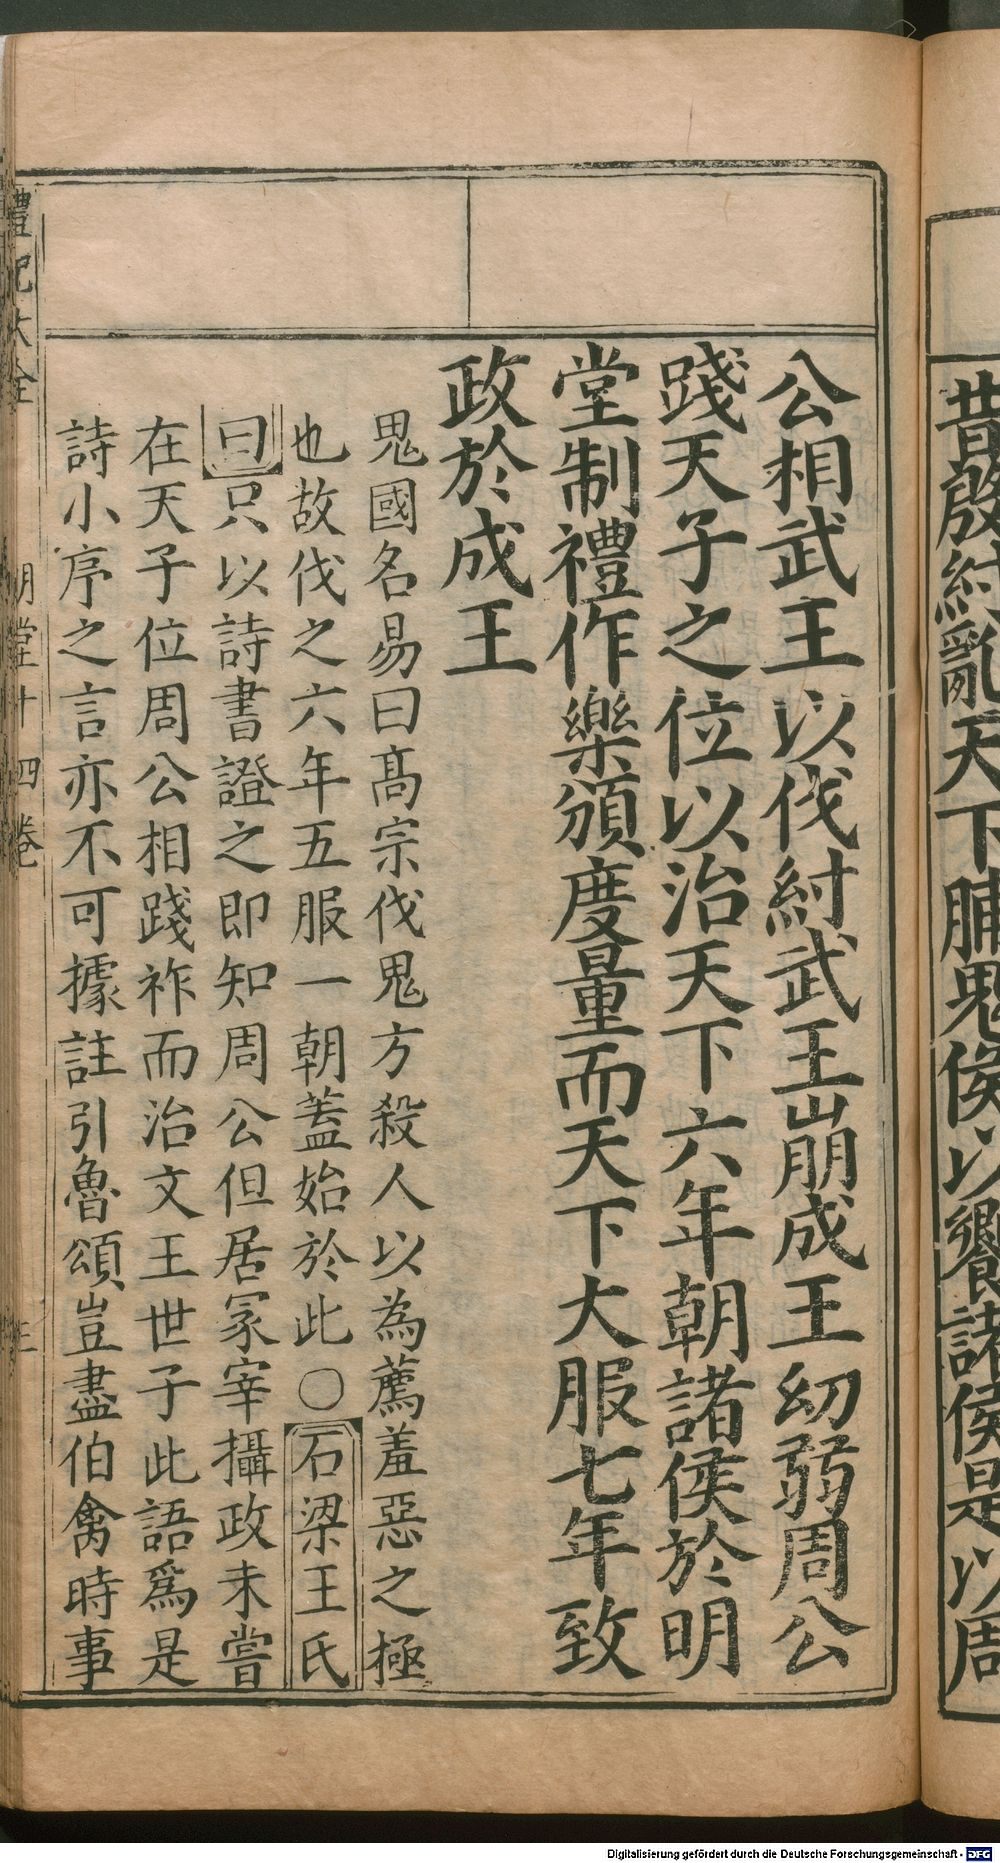 昔殷紂亂天下脯鬼侯以饗諸侯是以周
公相武王以伐紂武王崩成王幼弱周公
踐天子之位以治天下六年朝諸侯於明
堂制禮作樂頒度量而天下大服七年致
政於成王
鬼國名易曰高宗伐鬼方殺人以為薦羞惡之極
也故伐之六年五服一朝蓋始於此○石梁王氏
曰只以詩書證之即知周公但居冢宰攝政未嘗
在天子位周公相踐祚而治文王世子此語爲是
詩小序之言亦不可據註引魯頌豈盡伯禽時事
禮記大全 明堂十四卷 三
Digitalisierung gefördert durch die Deutsche Forschungsgemeinschaft - DFG